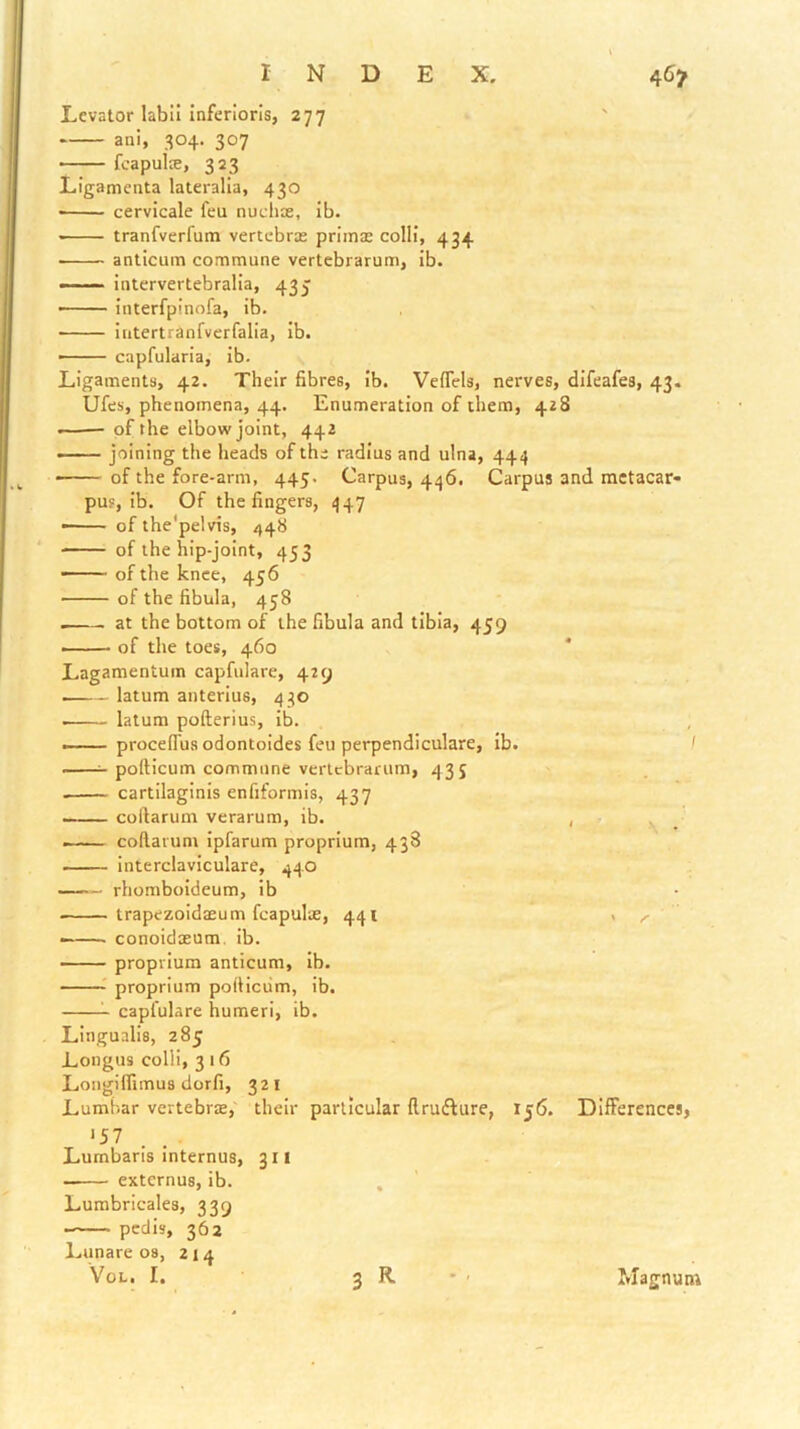 I N D E X. 467
Levator labii inferioris, 277
—— ani, 304. 307
—— ſcapulæ, 323
Ligamenta lateralia, 430
—— cervicale ſeu nuchæ, ib.
—— tranſverſum vertebræ primæ colli, 434
—— anticum commune vertebrarum, ib.
—— intervertebralia, 435
—— interſpinoſa, ib.
—— intertranſverſalia, ib.
—— capſularia, ib.
Ligaments, 42. Their fibres, ib. Veſſels, nerves, diſeaſes, 43.
Uſes, phenomena, 44. Enumeration of them, 428
—— of the elbow joint, 442
—— joining the heads of the radius and ulna, 444
—— of the fore-arm, 445. Carpus, 446. Carpus and metacar-
pus, ib. Of the fingers, 447
—— of the pelvis, 448
—— of the hip-joint, 453
—— of the knee, 456
—— of the fibula, 458
—— at the bottom of the fibula and tibia, 459
—— of the toes, 460
Lagamentum capſulare, 429
—— latum anterius, 430
—— latum poſterius, ib.
—— proceſſus odontoides ſeu perpendiculare, ib.
—— poſticum commune vertebrarum, 435
—— cartilaginis enſiformis, 437
—— coſtarum verarum, ib.
—— coſtarum ipſarum proprium, 438
—— interclaviculare, 440
—— rhomboideum, ib
—— trapezoidæum ſcapulæ, 441
—— conoidæum. ib.
—— proprium anticum, ib.
—— proprium poſticum, ib.
—— capſulare humeri, ib.
Lingualis, 285
Longus colli, 316
Longiſſimus dorſi, 321
Lumbar vertebræ, their particular ſtructure, 156. Differences,
157
Lumbaris internus, 311
—— externus, ib.
Lumbricales, 339
—— pedis, 362
Lunare os, 214
Vol. I. 3 R Magnum